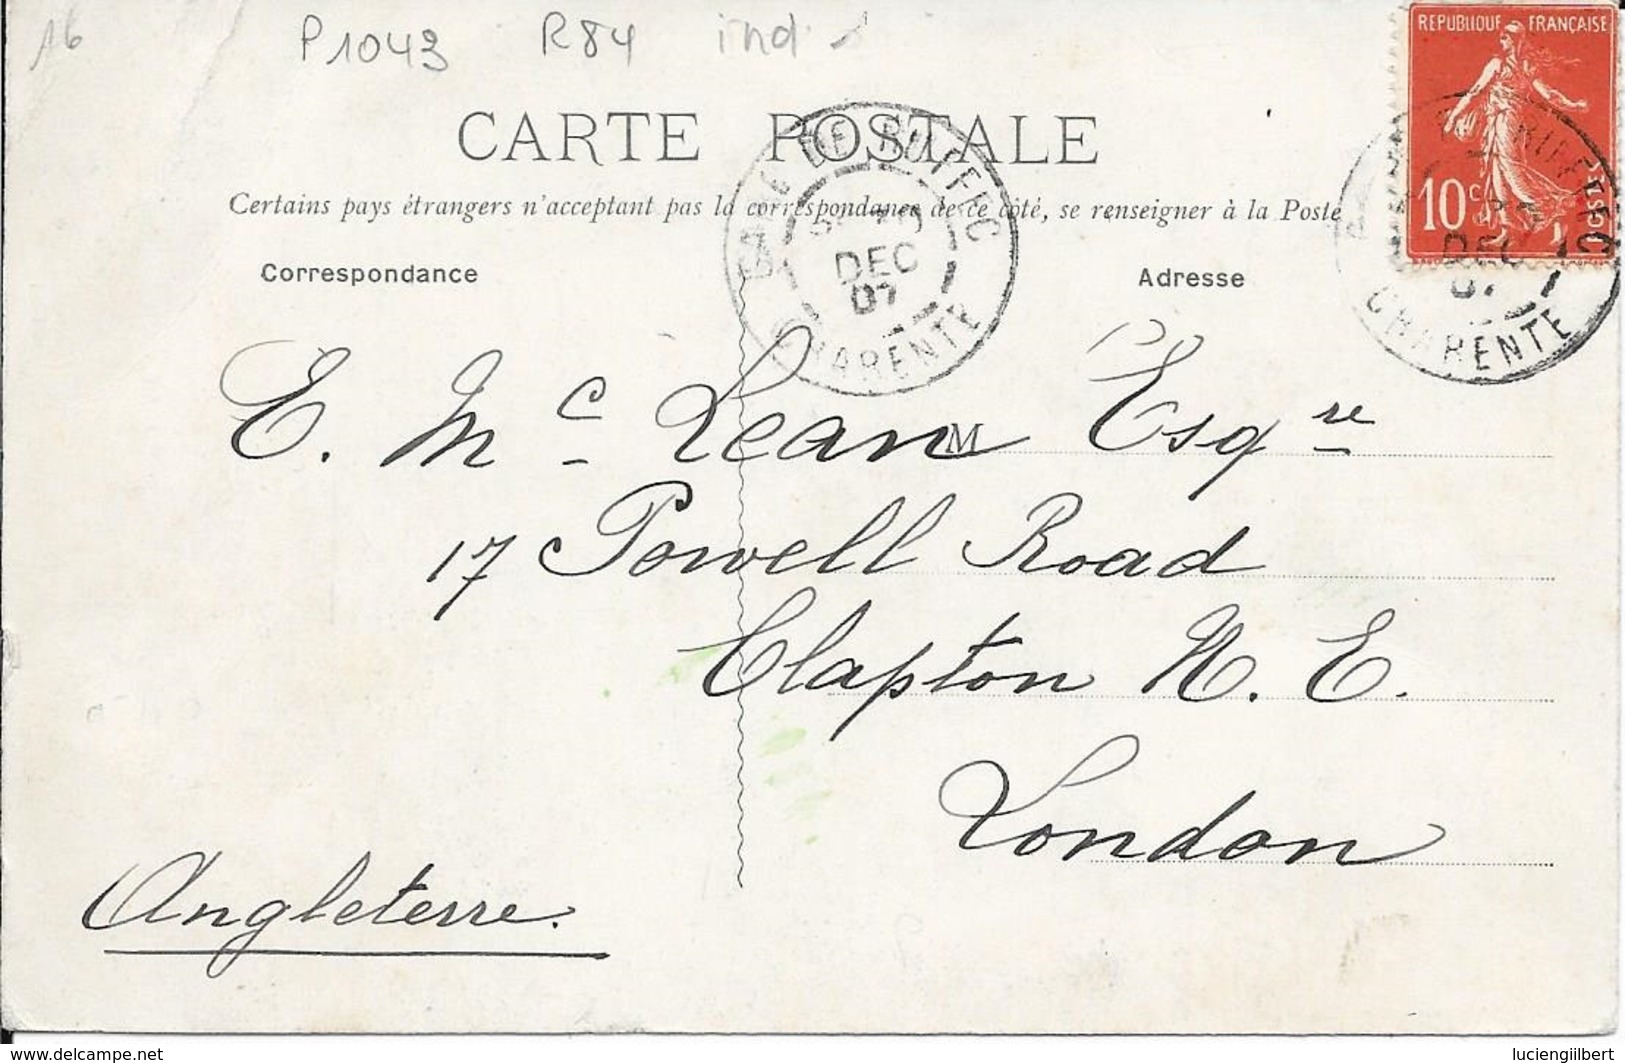 16 P1043 R84 ind
REPUBLIQUE FRANÇAISE
10 c
CARTE POSTALE
Certains pays étrangers n'acceptant pas la correspondance de ce côté, se renseigner à la Poste
GARE DE RUFFEC
DEC
07
CHARENTE
RUFFEC
DEC
07
CHARENTE
Correspondance
Adresse
E. Mc Lean Esqre
M
17 Powell Road
Clapton N. E.
London
Angleterre.
www.delcampe.net
luciengilbert